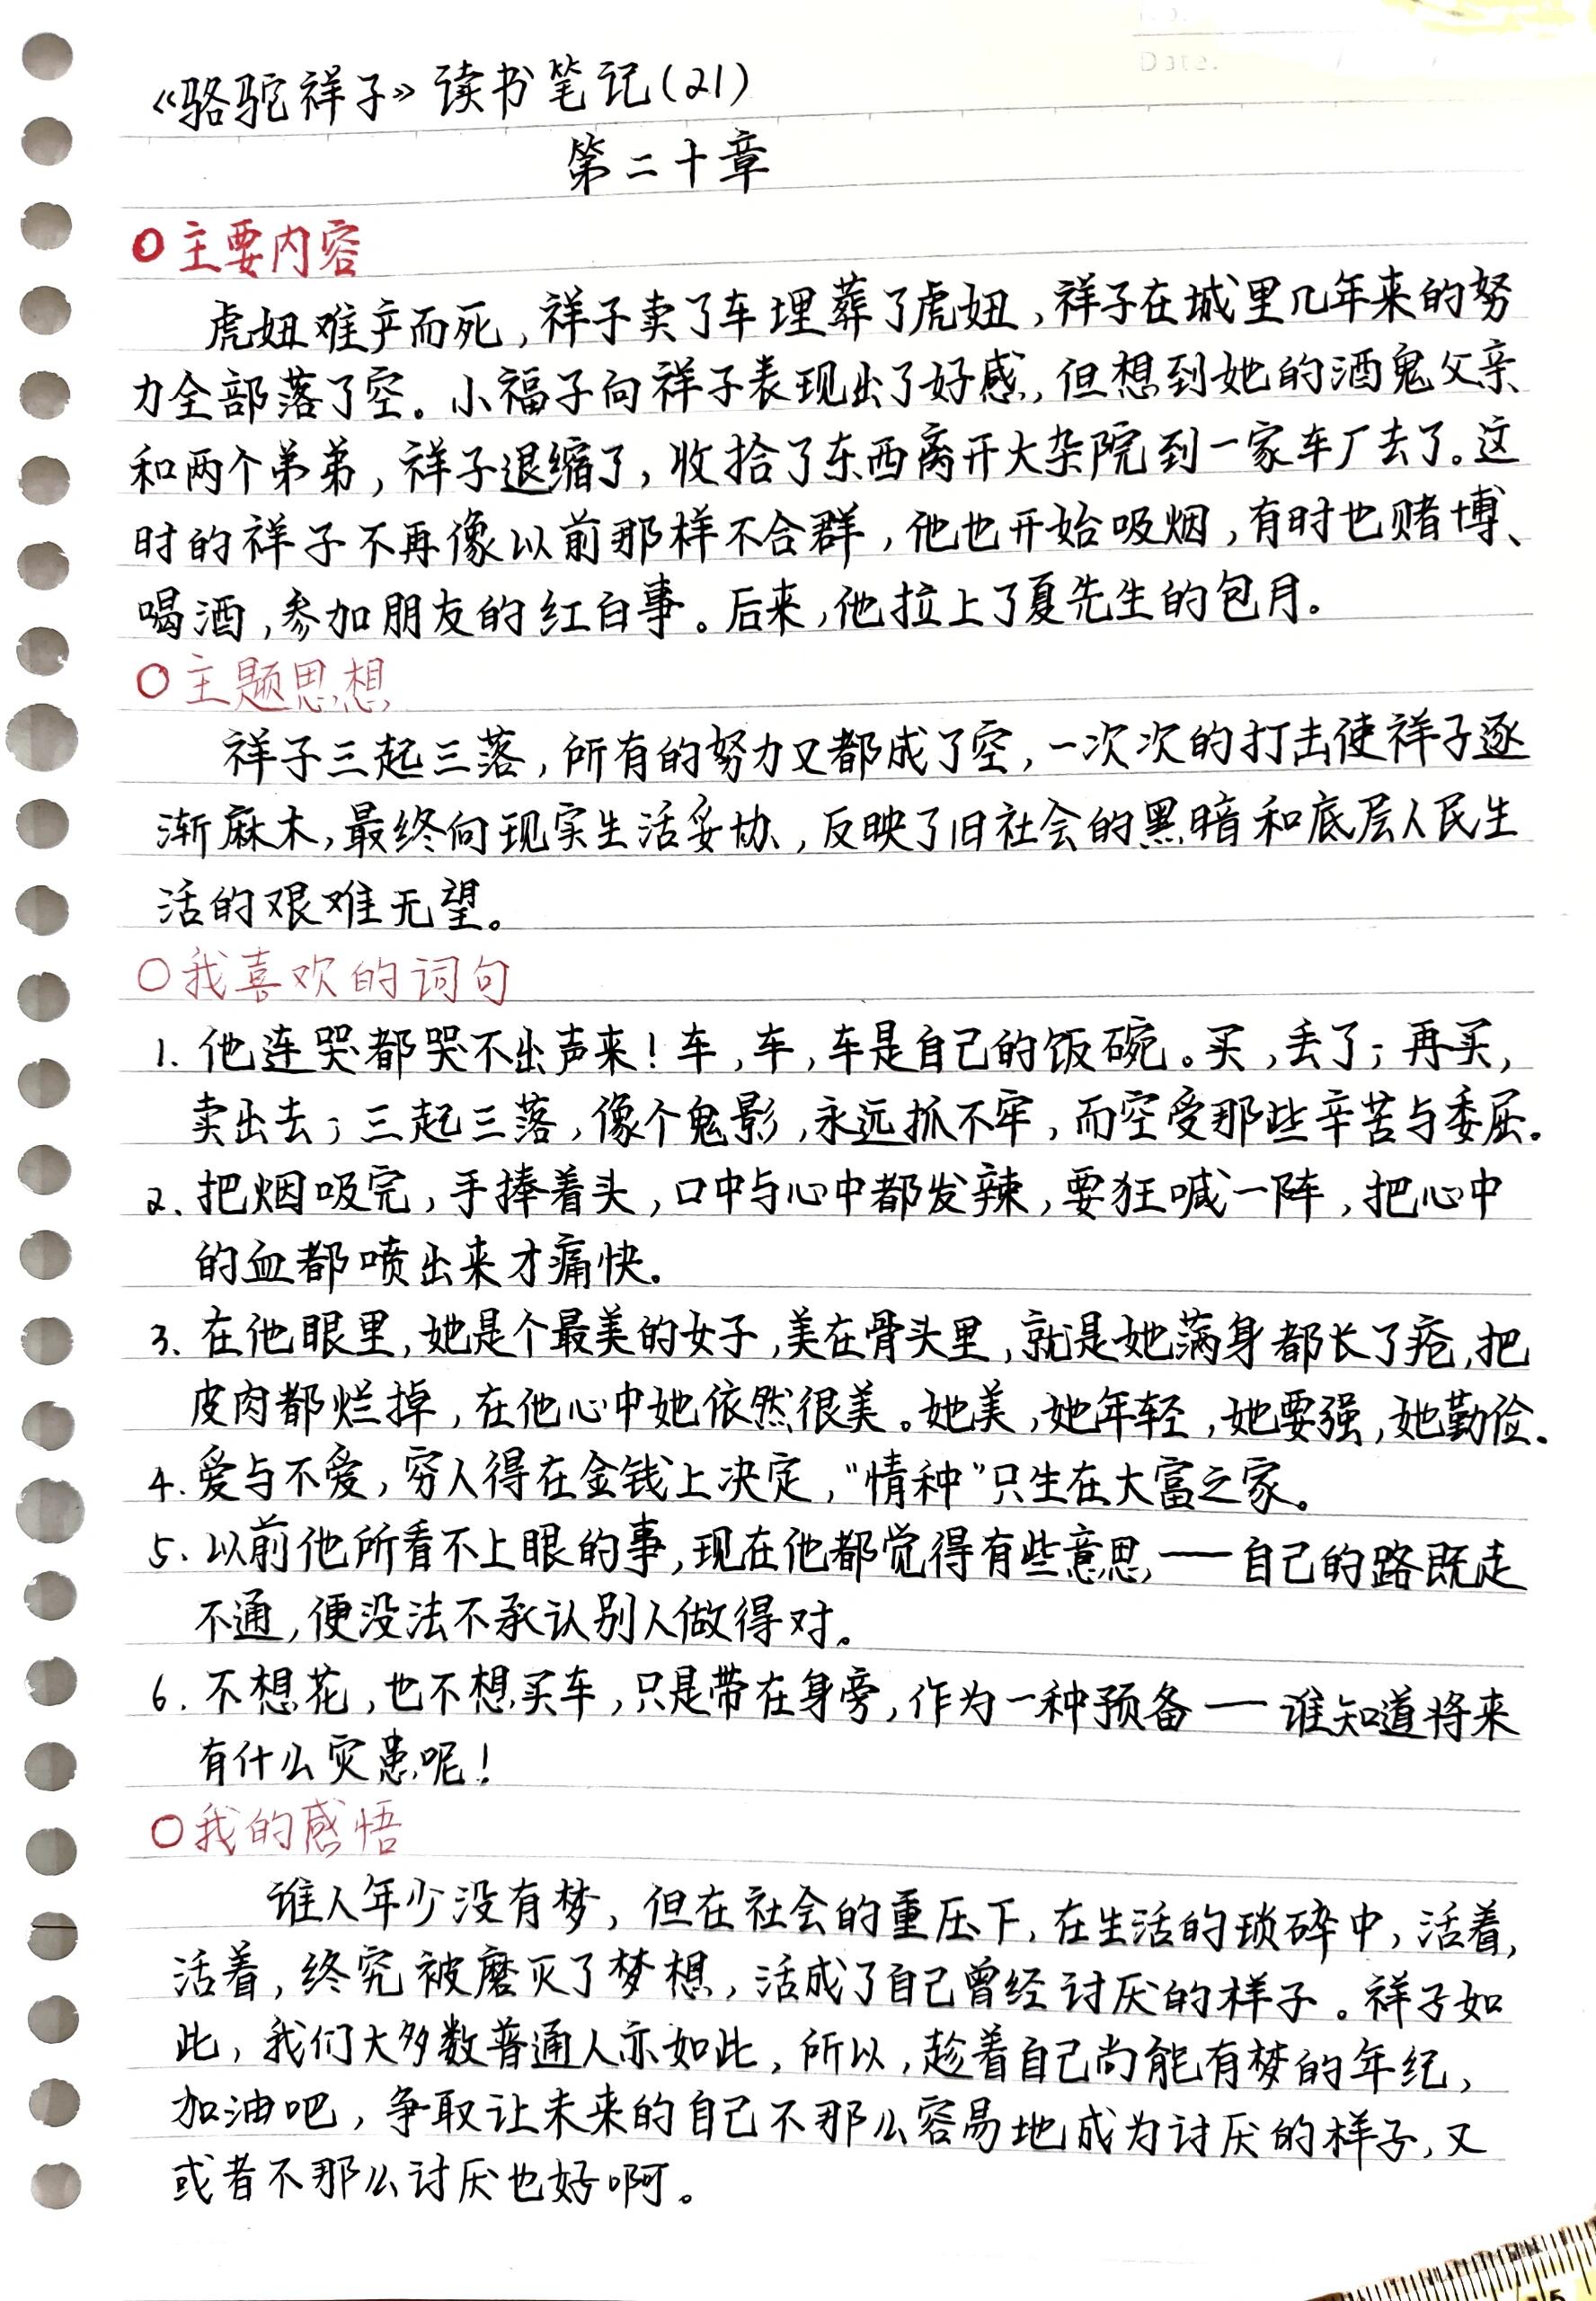 Date.
《骆驼祥子》读书笔记(21)
第二十章
○主要内容
虎妞难产而死,祥子卖了车埋葬了虎妞,祥子在城里几年来的努
力全部落了空。小福子向祥子表现出了好感,但想到她的酒鬼父亲
和两个弟弟,祥子退缩了,收拾了东西离开大杂院到一家车厂去了。这
时的祥子不再像以前那样不合群,他也开始吸烟,有时也赌博、
喝酒,参加朋友的红白事。后来,他拉上了夏先生的包月。
○主题思想
祥子三起三落,所有的努力又都成了空,一次次的打击使祥子逐
渐麻木,最终向现实生活妥协,反映了旧社会的黑暗和底层人民生
活的艰难无望。
○我喜欢的词句
1. 他连哭都哭不出声来!车,车,车是自己的饭碗。买,丢了;再买,
卖出去;三起三落,像个鬼影,永远抓不牢,而空受那些辛苦与委屈。
2. 把烟吸完,手捧着头,口中与心中都发辣,要狂喊一阵,把心中
的血都喷出来才痛快。
3. 在他眼里,她是个最美的女子,美在骨头里,就是她满身都长了疮,把
皮肉都烂掉,在他心中她依然很美。她美,她年轻,她要强,她勤俭.
4. 爱与不爱,穷人得在金钱上决定,“情种”只生在大富之家。
5. 以前他所看不上眼的事,现在他都觉得有些意思——自己的路既走
不通,便没法不承认别人做得对。
6. 不想花,也不想买车,只是带在身旁,作为一种预备—谁知道将来
有什么灾患呢!
○我的感悟
谁人年少没有梦,但在社会的重压下,在生活的琐碎中,活着,
活着,终究被磨灭了梦想,活成了自己曾经讨厌的样子。祥子如
此,我们大多数普通人亦如此,所以,趁着自己尚能有梦的年纪,
加油吧,争取让未来的自己不那么容易地成为讨厌的样子,又
或者不那么讨厌也好啊。
15